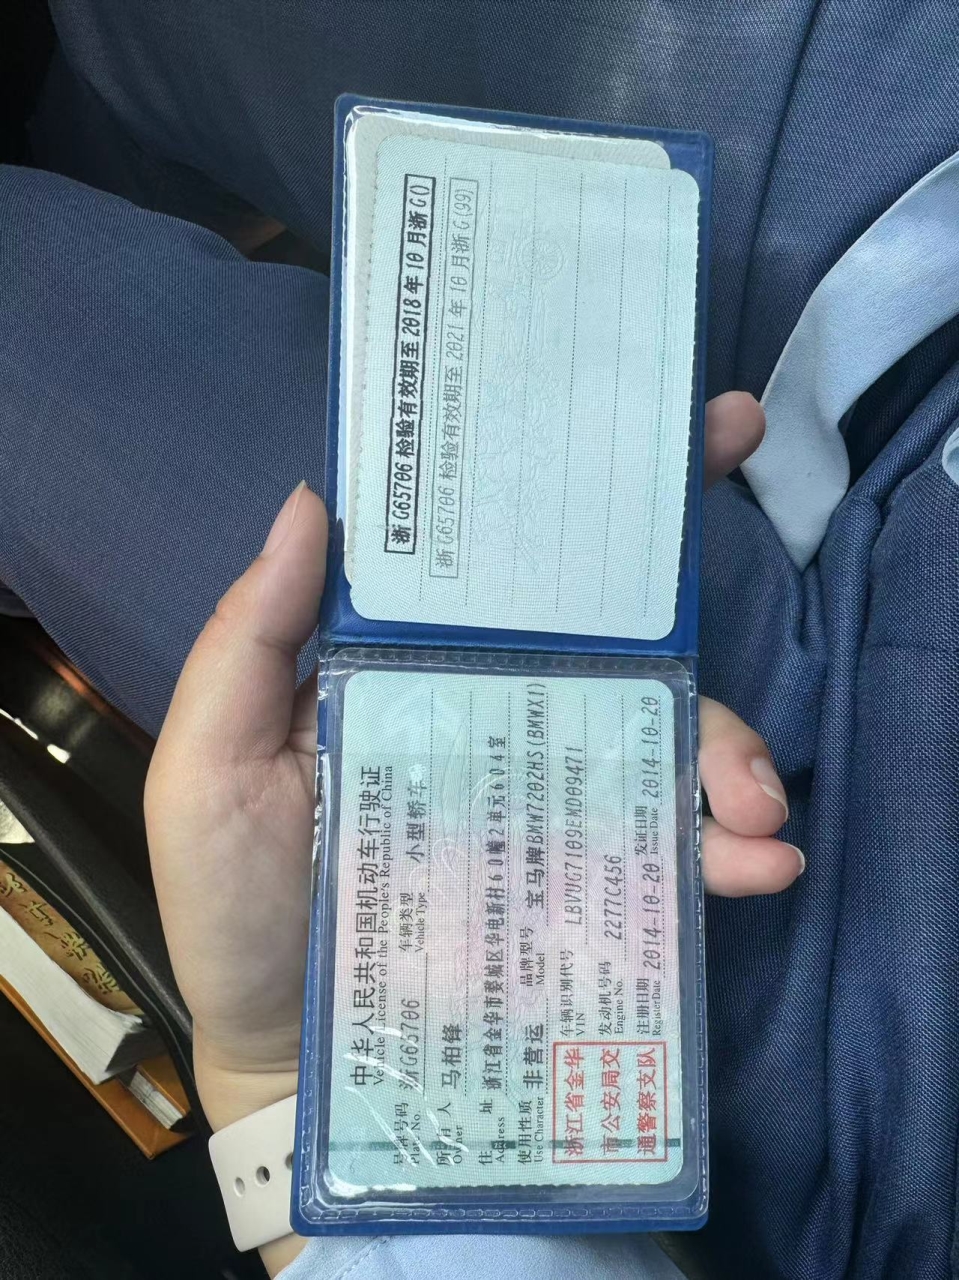 浙G65706检验有效期至2018年10月浙G()
浙G65706检验有效期至2021年10月浙G(99)
中华人民共和国机动车行驶证
Vehicle License of the People's Republic of China
号牌号码 浙G65706 车辆类型 小型轿车
Plate No. Vehicle Type
所有人 马柏锋
Owner
住址 浙江省金华市婺城区华电新村60幢2单元604室
Address
使用性质 非营运 品牌型号 宝马牌BMW7202HS(BMWX1)
Use Character Model
浙江省金华
市公安局交
通警察支队
车辆识别代号 LBVUG7109EMD09471
VIN
发动机号码 2277C456
Engine No.
注册日期 2014-10-20 发证日期 2014-10-20
Register Date Issue Date